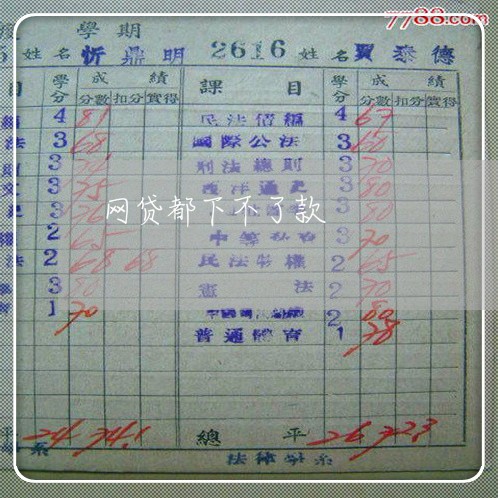 7788.com
學期
姓名 忻鼎明 2616 姓名 賈泰德
目 學分 成績 課目 學分 成績
分數 扣分 實得 分數 扣分 實得
4 81 民法債編 4 67
法 3 68 國際公法 3 60
3 刑法總則 3 70
3 75 西洋通史 3 80
3 3 80
2 65 中等 3 70
法 2 68 68 民法物權 2 65
3 80 憲法 2 70
1 70 2 80
普通體育 1 78
網貸都下不了款
平 24 74.1 總平 26 72.3
系 法律學系